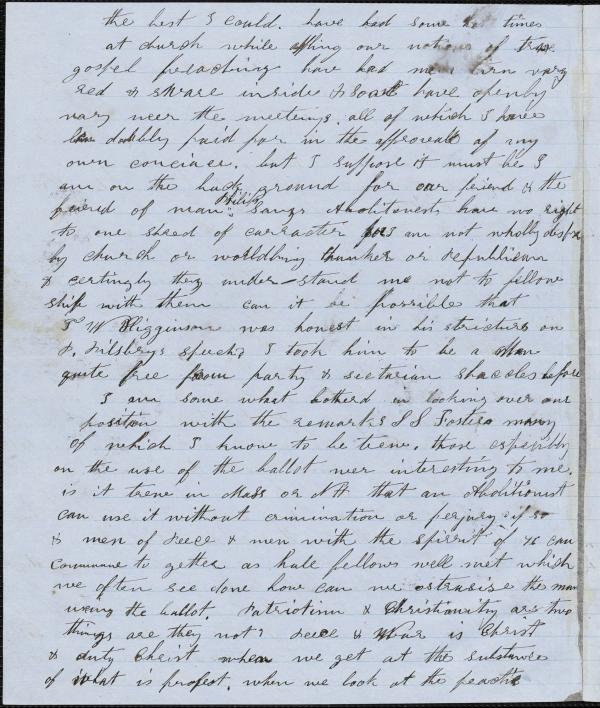 the best I could. have had some hot times
at church while offing our notions of true
gospel preaching have had men turn vary
red & sware inside & Soat have openly
vary neer the meetings. all of which I have
been dubbly paid for in the approveall of my
own conciace. but I suppose it must be I
am on the back ground for our friend & the
friend of man Philip Says Abolitionests have no right
to one shred of carracter for I am not wholly
by church or worldling thinker or republican
& certingly they under-stand me not to fellow
ship with them can it be possible that
T W Higginson was honest in his strictures on
P. Pilsberys speech I took him to be a Man
quite free from party & sectarian shackles before
I am some what botherd in looking over our
position with the remarks S S Foster many
of which I know to be trene. those espesbly
on the use of the ballot wer interesting to me.
is it trene in Mass or NH that an Abolitionist
can use it without crimination or perjury if so
& men of peece & men with the spirrit of 76 can
Commune to gether as hale fellows well met which
we often see done how can we ostrasise the man
useing the ballot. Patriotism & Christianity are two
things are they not? peece & War is Christ
& duty Christ when we get at the substance
of what is profest. when we look at the